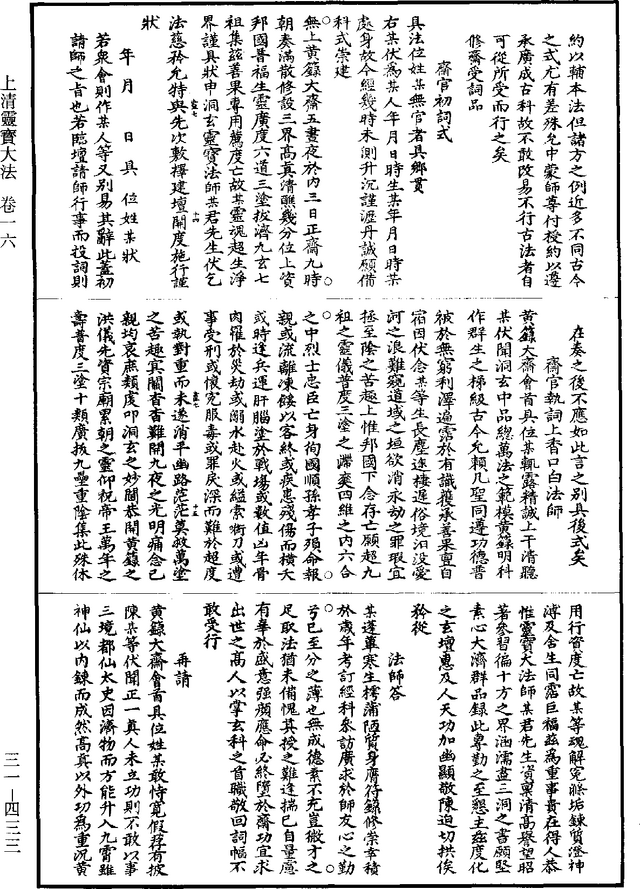 上清靈寶大法　卷一六
三一—四三三
約以輔本法但諸方之例近多不同古今
之式尤有差殊允中蒙師尊付授約以遵
承廣成古科故不敢改易不行古法者自
可從所受而行之矣
修齋受詞品
齋官初詞式
具法位姓某無官者具鄉貫
右某伏為某人年月日時生某年月日時某
處身故今經幾時未測升沉謹瀝丹誠願備
科式崇建
無上黃籙大齋五晝夜於內三日正齋九時
朝奏滿散修設三界高真清醮幾分位上資
邦國普福生靈廣度六道三塗拔濟九玄七
祖集茲善果專用薦度亡故某靈魂超生淨
界謹具狀申洞玄靈寶法師某君先生伏乞
法慈矜允特與先次敷擇建壇開度施行謹
狀
年　月　日　具　位　姓　某　狀
若衆會則作某人等又別易其辭此蓋初
請師之旨也若臨壇請師行事而投詞則
在奏之後不應如此言之別具後式矣
齋官執詞上香口白法師
黃籙大齋會首具位某輒露精誠上干清聽
某伏聞洞玄中品總萬法之範模黃籙明科
作群生之梯級古今允賴凡聖同遵功德普
被於無窮利澤遍霑於有識獲承善果亶自
宿因伏念某等生長塵途棲遲俗境汩没愛
河之浪難窺道域之垣欲消永劫之罪瑕宜
拯至陰之苦趣上惟邦國下念存亡願超九
祖之靈儀普度三塗之滯爽四維之内六合
之中烈士忠臣亡身徇國順孫孝子殞命報
親或流離凍餒以客終或疾患殘傷而橫夭
或時逢兵運肝腦塗於戰場或數值凶年骨
肉罹於災劫或溺水赴火或縊索衂刀或遭
事受刑或懷冤服毒或罪戾深而難於超度
或執對重而未遂消平幽路茫茫莫救萬塗
之苦趣冥關杳杳難開九夜之光明痛念已
親均哀庶類虔叩洞玄之妙闢恭開黃籙之
洪儀先資宗廟累朝之靈仰祝帝王萬年之
壽普度三塗十類廣拔九壘重陰集此殊休
用行資度亡故某等魂解冤滌垢錬質澄神
溥及含生同霑巨福茲為重事貴在得人恭
惟靈寶大法師某君先生而資稟清高譽望昭
著參習徧十方之界涵濡盡三洞之書願堅
素心大濟群品録此專勤之至懇主茲度化
之玄壇惠及人天功加幽顯敢陳迫切拱俟
矜從
法師答
某蓬蓽寒生樗蒲陋質身膺符籙修崇幸積
於歲年考訂經科參訪廣求於師友心之勤
亏已至分之薄也無成德素不充豈微才之
足取法猶未備愧真授之難逢揣已自量慮
有辜於盛意强頰應命必終墮於齋功宜求
出世之高人以掌玄科之首職敬回詞幅不
敢受行
再請
黃籙大齋會首具位姓某敢恃寬假荐有披
陳某等伏聞正一真人未立功則不敢以事
三境都仙太史因濟物而方能升入九霄雖
神仙以内錬而成然高真以外功為重況黃